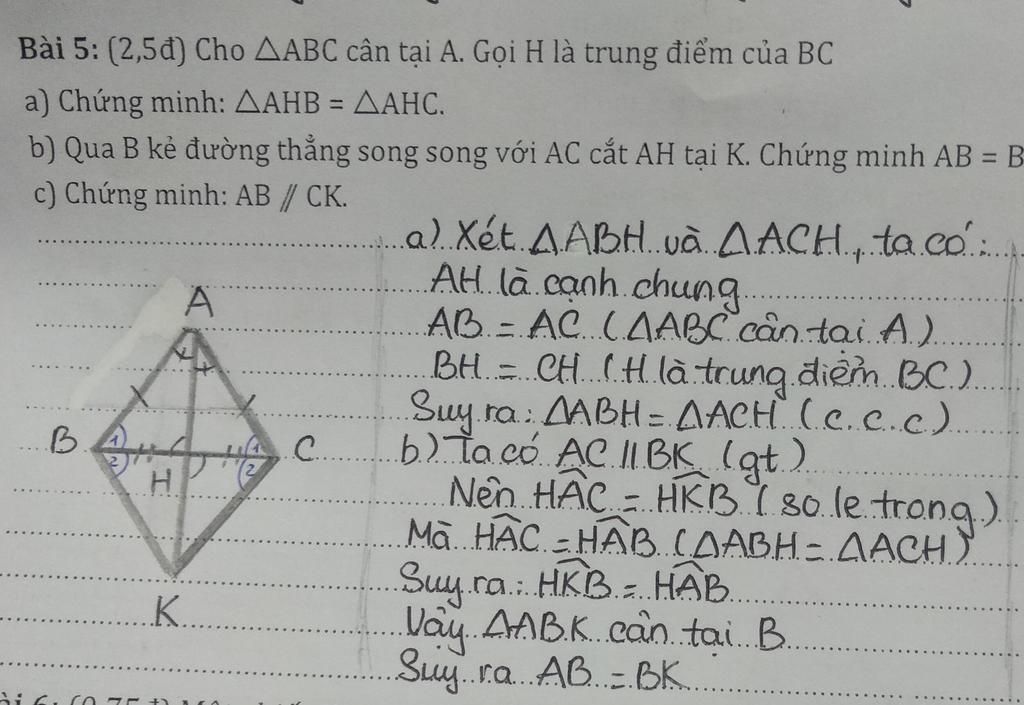 Bài 5: (2,5đ) Cho △ABC cân tại A. Gọi H là trung điểm của BC
a) Chứng minh: △AHB = △AHC.
b) Qua B kẻ đường thẳng song song với AC cắt AH tại K. Chứng minh AB = B
c) Chứng minh: AB // CK.
a) Xét △ABH và △ACH, ta có:
AH là cạnh chung
AB = AC (△ABC cân tại A)
BH = CH (H là trung điểm BC)
Suy ra: △ABH = △ACH (c.c.c)
b) Ta có AC // BK (gt)
Nên HÂC = HK̂B (so le trong)
Mà HÂC = HÂB (△ABH = △ACH)
Suy ra: HK̂B = HÂB
Vậy △ABK cân tại B
Suy ra AB = BK
A
B 1 1 C
2 2
H
K